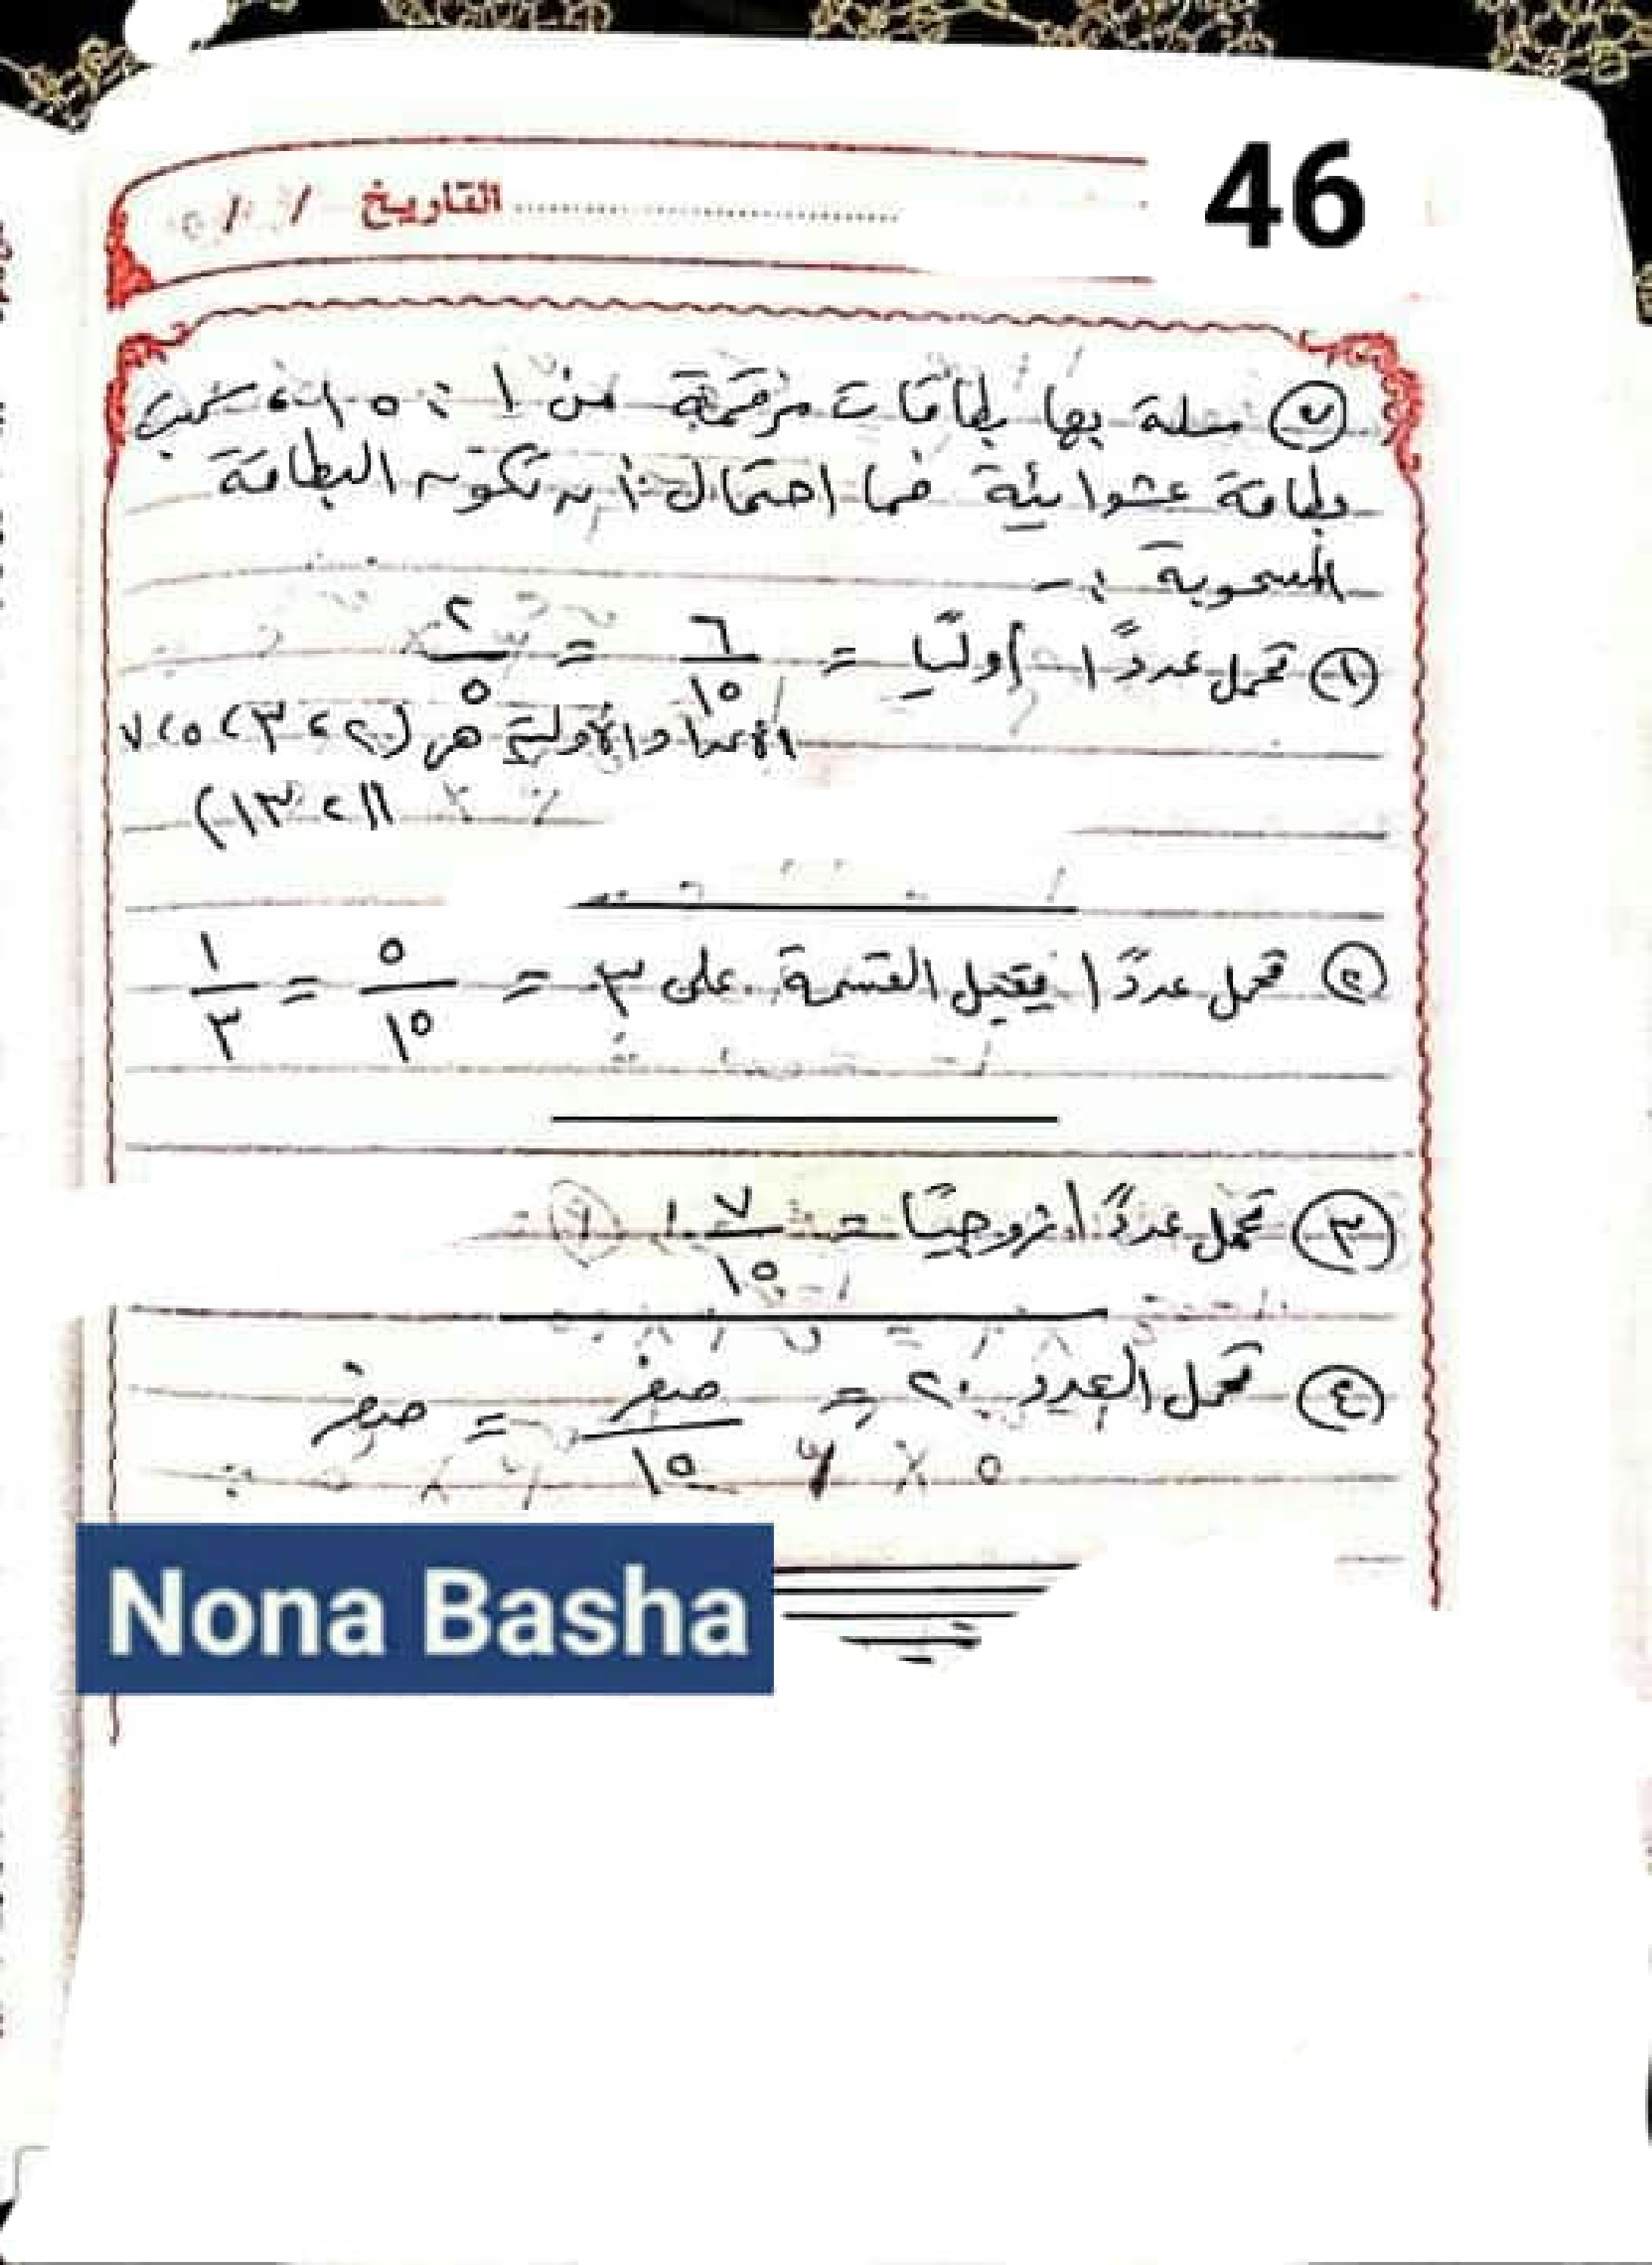 46
التاريخ / /
٧ سلة بها بطاقات مرقمة من ١ : ١٥ ، سحبت
بطاقة عشوائية فما احتمال أن تكون البطاقة
المسحوبة :-
١ تحمل عددًا أوليًا = ٦/١٥ = ٢/٥
الأعداد الأولية هى (٢ ، ٣ ، ٥ ، ٧
١١ ، ١٣)
٢ تحمل عددًا يقبل القسمة على ٣ = ٥/١٥ = ١/٣
٣ تحمل عددًا زوجيًا = ٧/١٥
٤ تحمل العدد ٢٠ = صفر/١٥ = صفر
Nona Basha